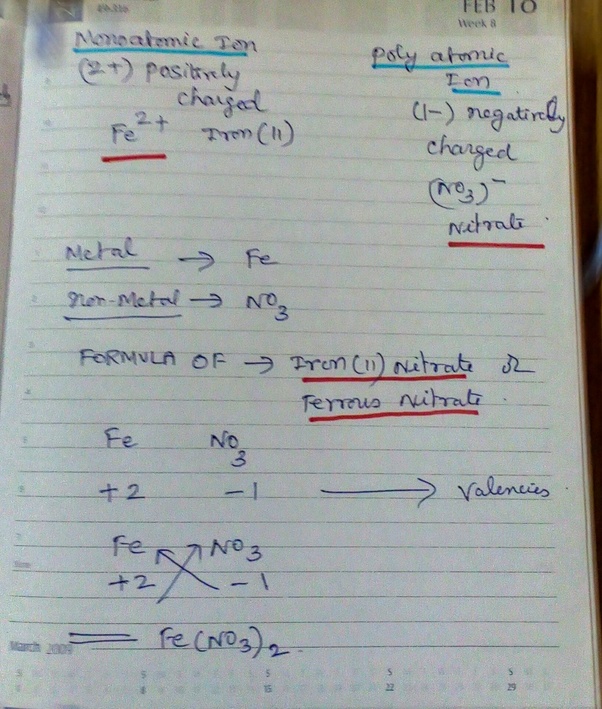 FEB 10
Week 8
Monoatomic Ion
(2+) positively
charged
Fe2+ Iron(II)
Poly atomic
Ion
(1-) negatively
charged
(NO3)-
Nitrate
Metal → Fe
Non-Metal → NO3
FORMULA OF → Iron(II) Nitrate Or
Ferrous Nitrate.
Fe NO3
+2 -1 → Valencies.
Fe NO3
+2 -1
Fe(NO3)2.
March 2009
S S S S S
8 15 22 29